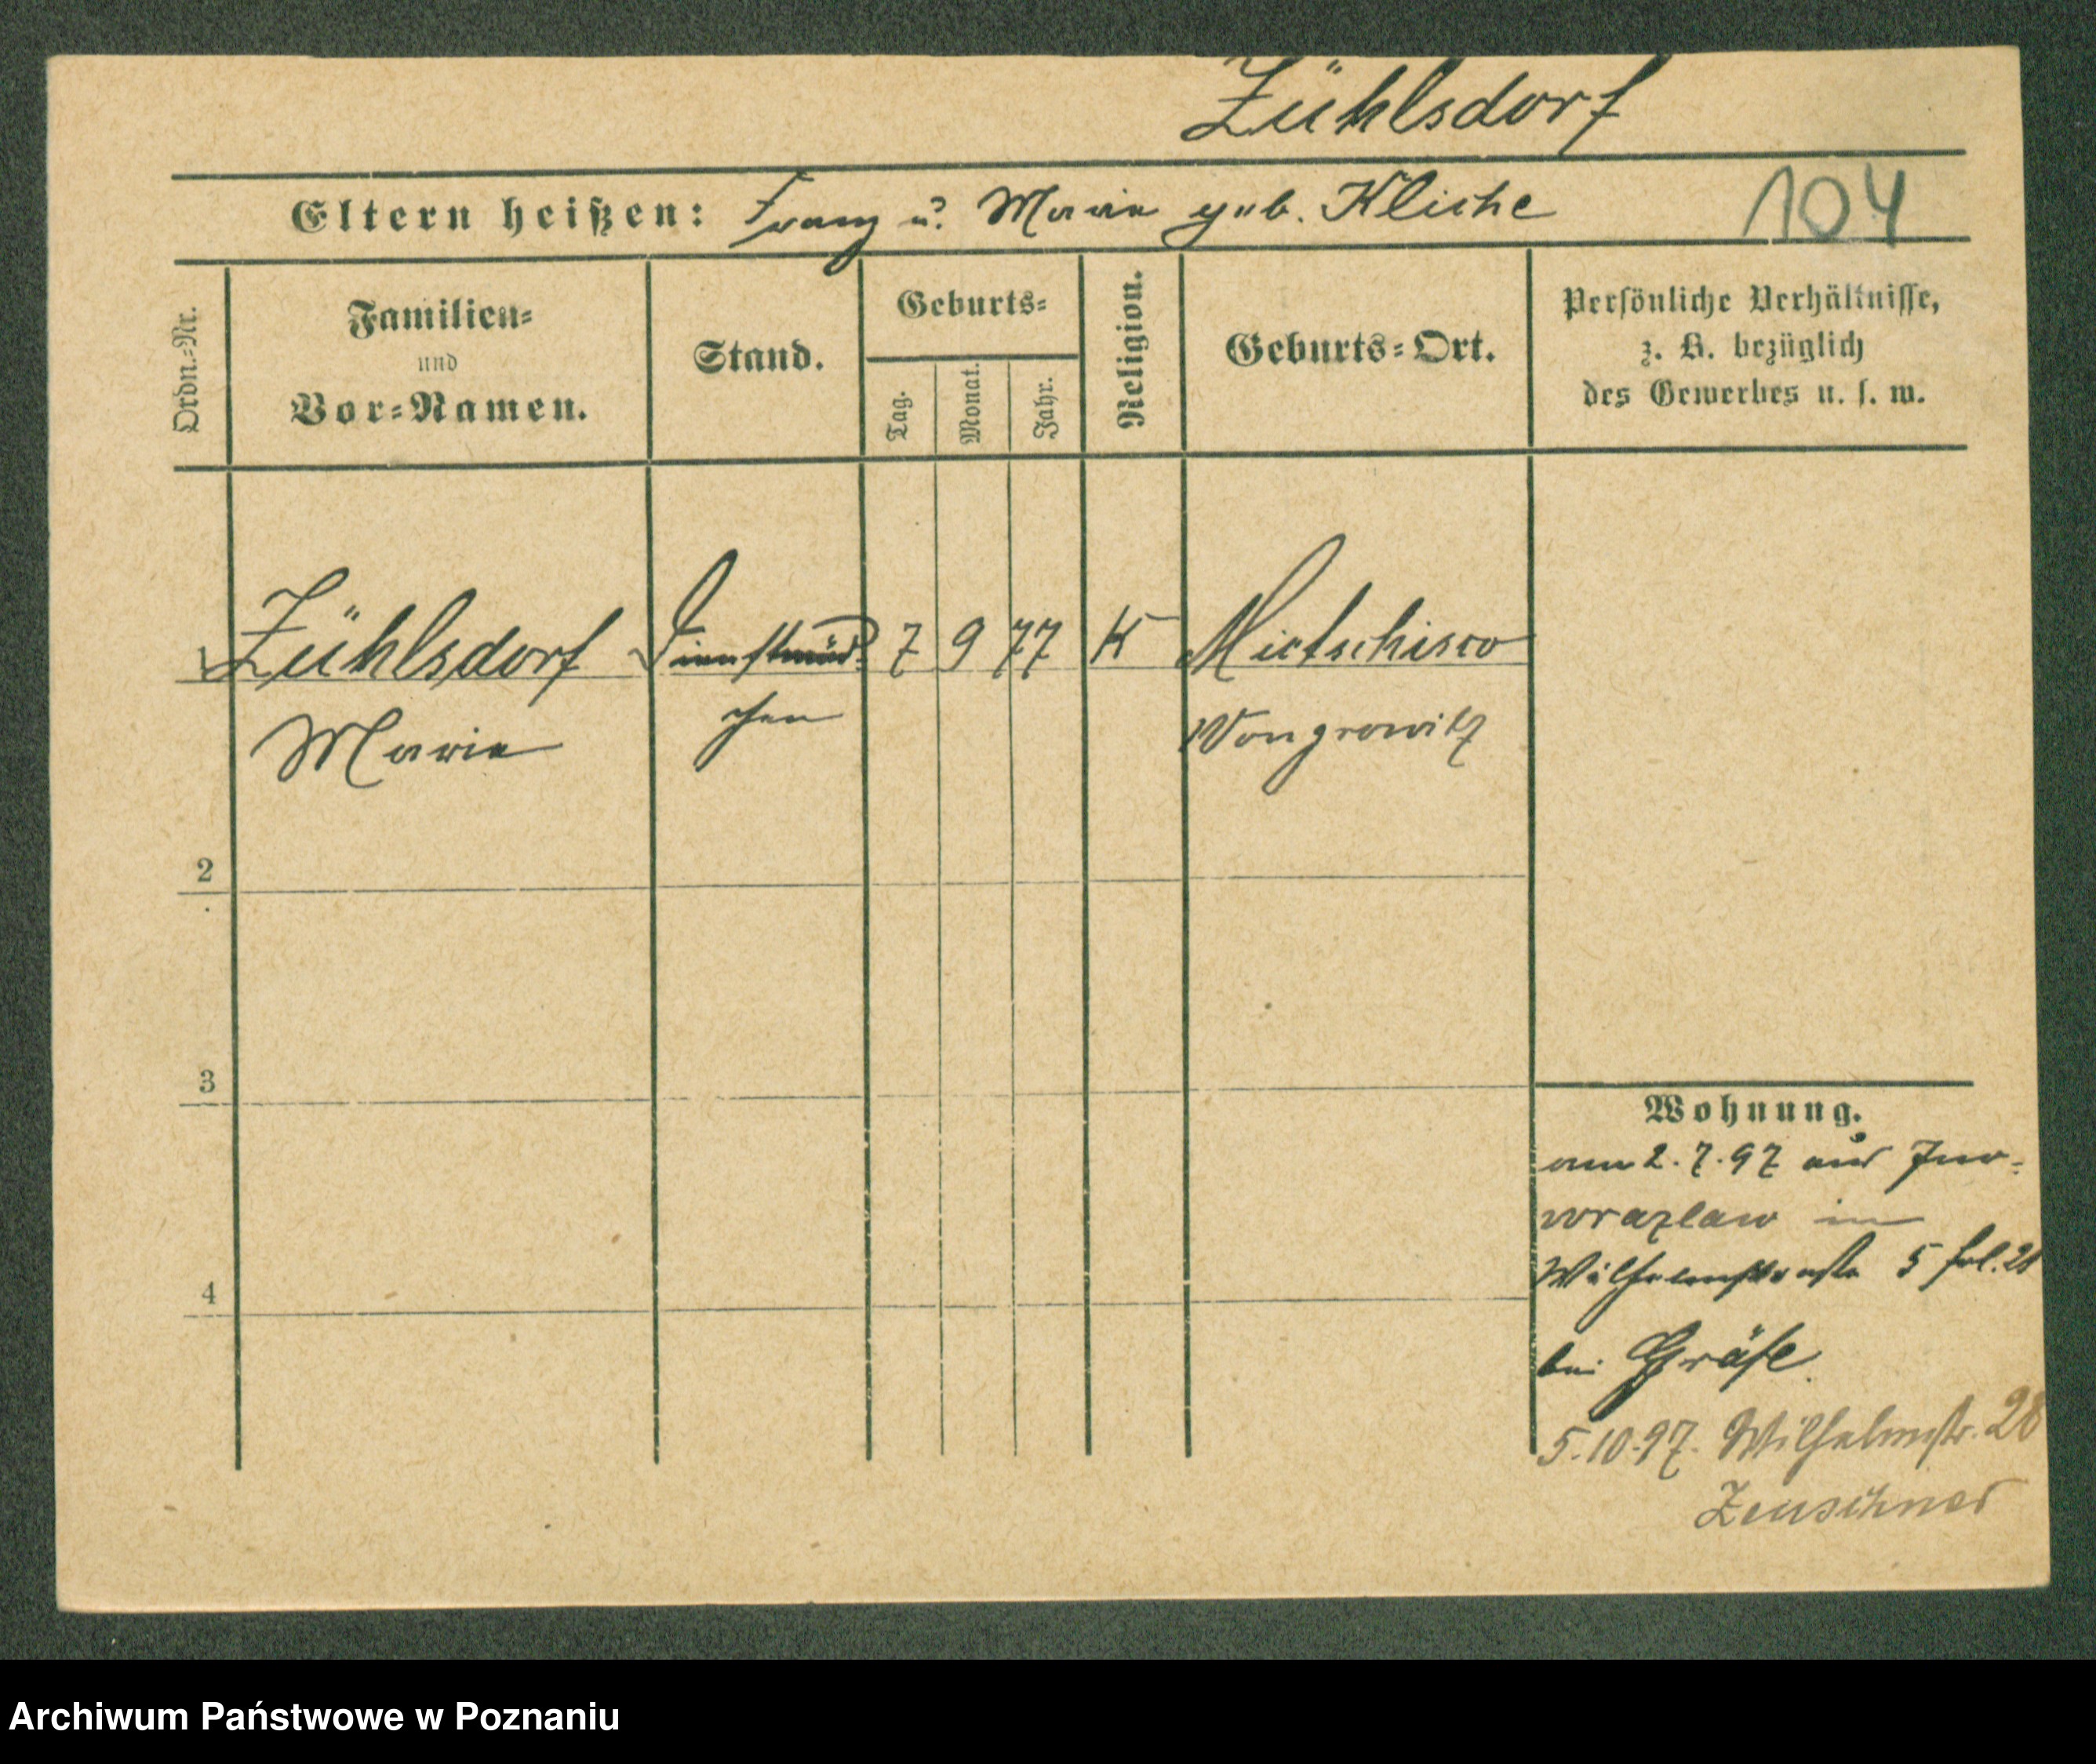 Zühlsdorf
Eltern heißen: Franz u. Marie geb. Kliche
104
Ordn.-Nr.
Familien-
und
Vor-Namen.
Stand.
Geburts-
Tag.
Monat.
Jahr.
Religion.
Geburts-Ort.
Persönliche Verhältnisse,
z. B. bezüglich
des Gewerbes u. s. w.
1 Zühlsdorf Dienstmäd- 7 9 77 K Mietschisco
Marie chen Wongrowitz
2
3
4
Wohnung.
am 2.7.97 aus Ino-
wrazlaw in
Wilhelmstraße 5
bei Gräfe.
5.10.97. Wilhelmstr. 28
Zeuschner
Archiwum Państwowe w Poznaniu